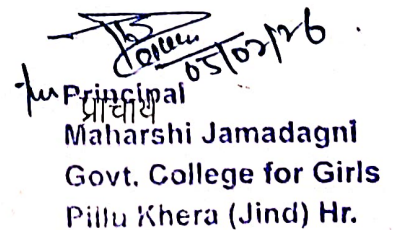 05/02/26
for Principal
प्राचार्य
Maharshi Jamadagni
Govt. College for Girls
Pillu Khera (Jind) Hr.